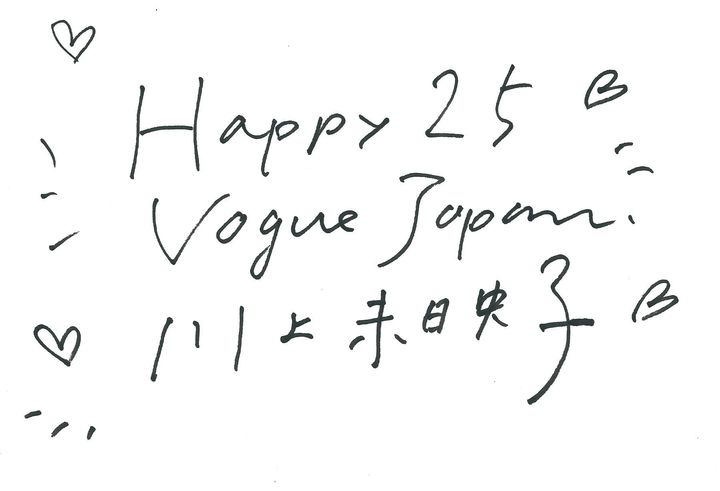 Happy 25
Vogue Japan.
川上未映子